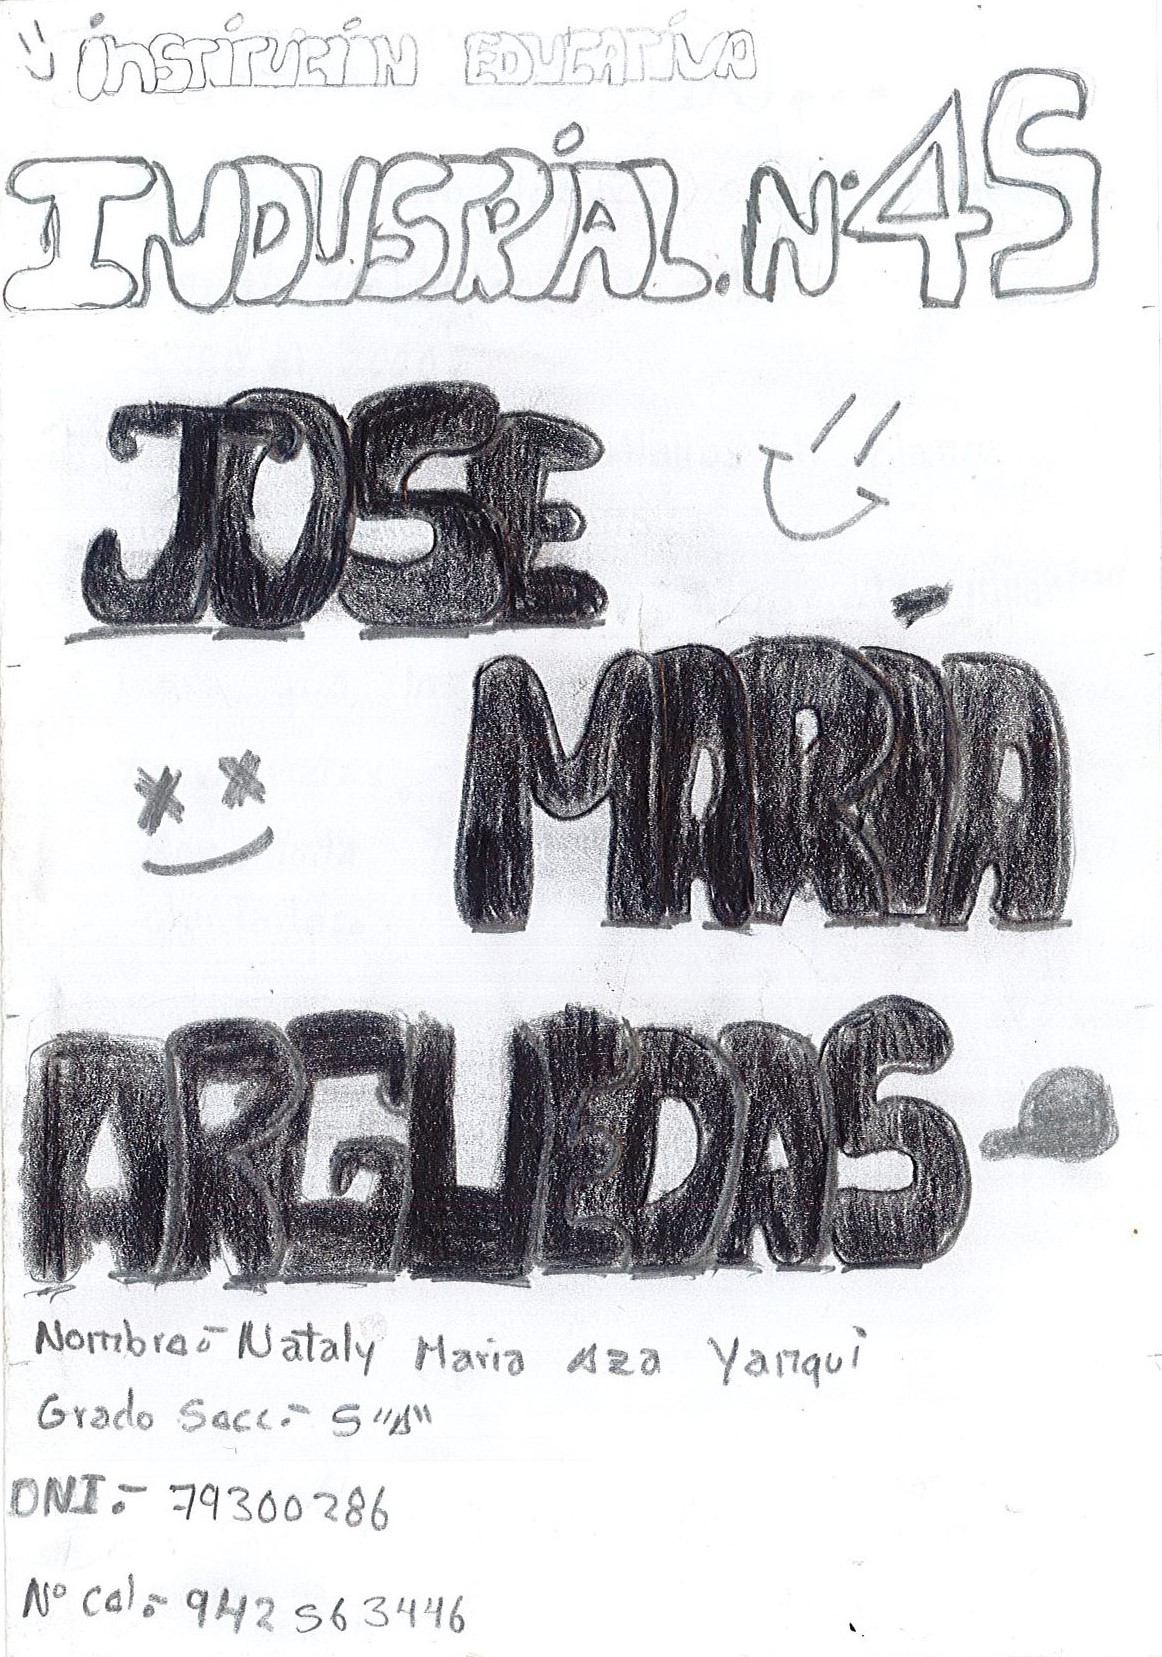 INSTITUCIÍN EDUCATIVA
INDUSTRIAL. N° 45
JOSE
MARÍA
ARGUEDAS
Nombre:- Nataly Maria Aza Yanqui
Grado Secc.- 5 "A"
DNI.- 79300286
N° Cel.- 942 563446